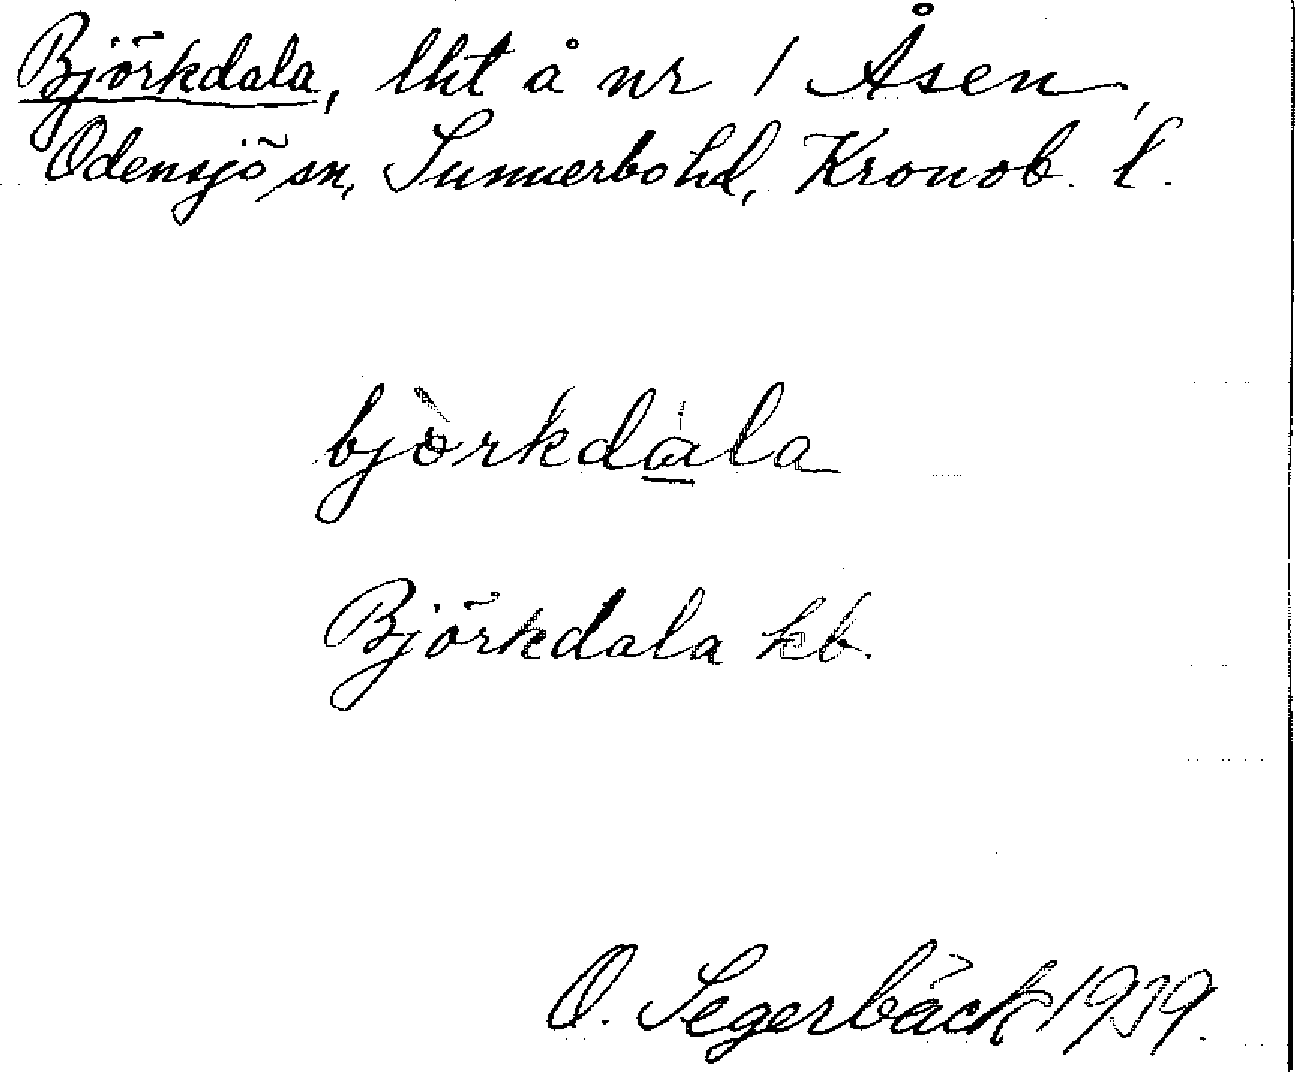 Björkdala, lht å nr 1 Åsen,
Odensjö sn, Sunnerbo hd, Kronob. l.
bjòrkdàla
Björkdala kb.
O. Segerbäck 1939.